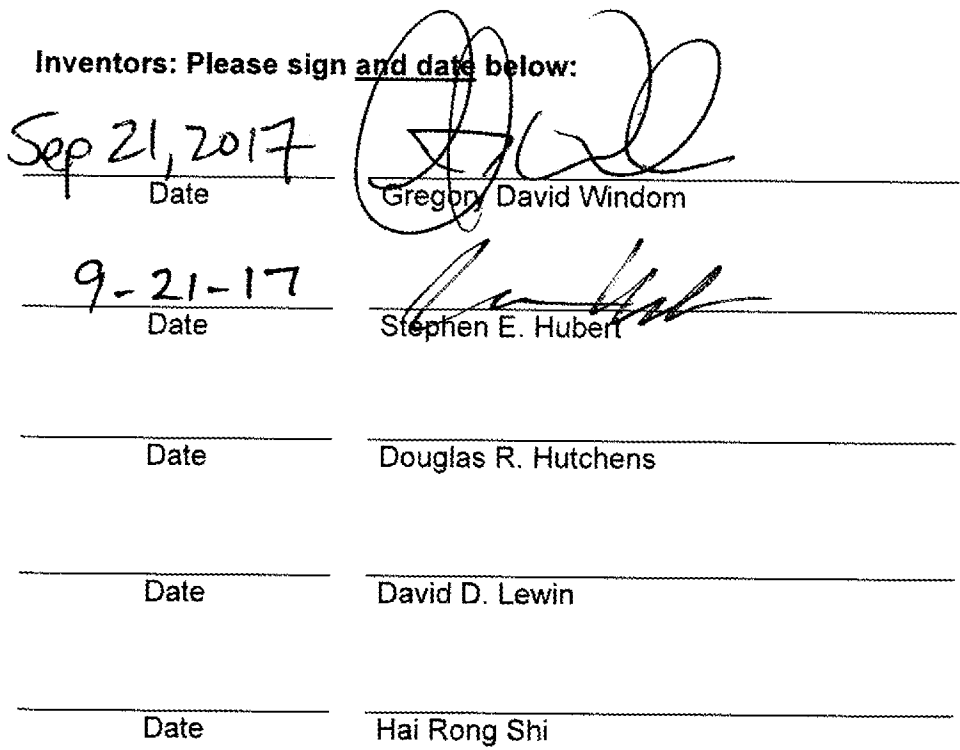 Inventors: Please sign and date below:
Sep 21, 2017
Date Gregory David Windom
9-21-17
Date Stephen E. Hubert
Date Douglas R. Hutchens
Date David D. Lewin
Date Hai Rong Shi